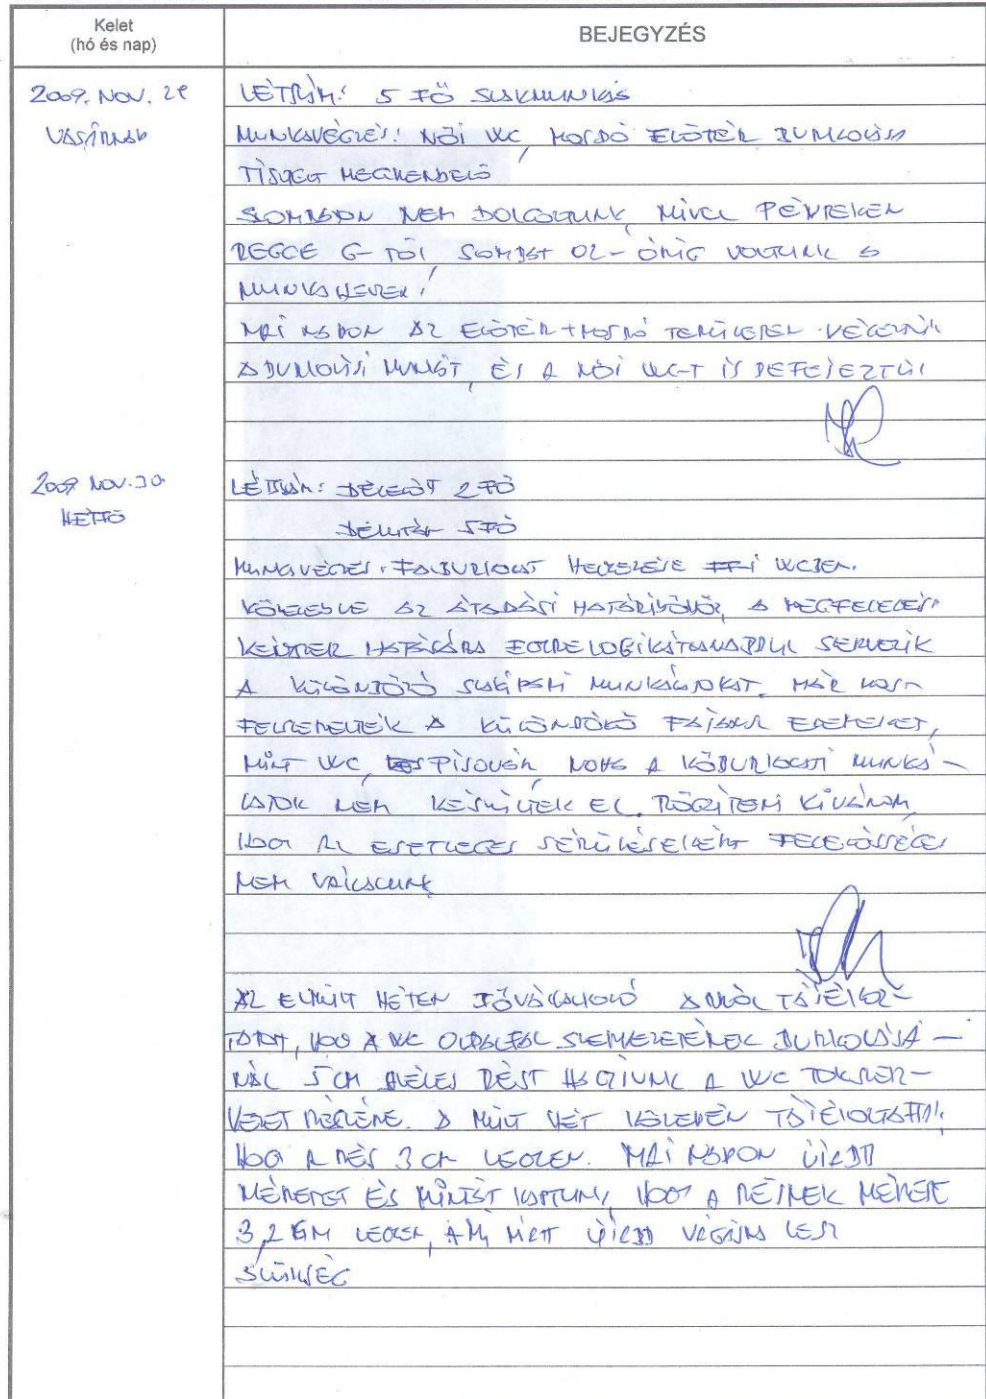 Kelet
(hó és nap)
BEJEGYZÉS
2009. NOV. 29
VASÁRNAP
LÉTSZÁM: 5 FŐ SZAKMUNKÁS
MUNKAVÉGZÉS: NŐI WC, MOSDÓ ELŐTÉR BURKOLÁSA
TISZTELT MEGRENDELŐ
SZOMBATON NEM DOLGOZTUNK, MIVEL PÉNTEKEN
REGGE 6-TÓL SZOMBAT 02-ÓRÁIG VOLTUNK A
MUNKAHELYEN!
MAI NAPON AZ ELŐTÉR+MOSDÓ TERÜLETEN VÉGEZNIK
A BURKOLÁSI MUNKÁT, ÉS A NŐI WC-T IS BEFEJEZTÜK
2009 NOV. 30
HÉTFŐ
LÉTSZÁM: DÉLELŐTT 2 FŐ
DÉLUTÁN 5 FŐ
MUNKAVÉGZÉS: FALBURKOLAT HELYEZÉSE FFI WCBEN.
KÖZELEDVE AZ ÁTADÁSI HATÁRIDŐHÖZ, A MEGFELELÉSI
KÉNYSZER HATÁSÁRA SZERVEZIK
A KÜLÖNBÖZŐ SZAKIPARI MUNKÁLATOKAT. MÁR MOST
FELSZERELTÉK A KÜLÖNBÖZŐ
MINT WC, PISOUÁR, NOHA A KŐBURKOLATI MUNKÁ-
LATOK NEM KÉSZÜLTEK EL. RÖGZÍTENI KÍVÁNOM,
HOGY AZ ESETLEGES SÉRÜLÉSEKÉRT FELELŐSSÉGET
NEM VÁLLALUNK
AZ ELMÚLT HÉTEN FŐVÁLLALKOZÓ ARRÓL TÁJÉKOZ-
TATOTT, HOGY A WC OLDALFAL SZERKEZETÉNEK BURKOLÁSÁ-
NÁL 5 CM SZÉLES RÉST HAGYJUNK A WC
RÉSZÉRE. A MÚLT HÉT KÖZEPÉN TÁJÉKOZTATTAK,
HOGY A RÉS 3 CM LEGYEN. MAI NAPON ÚJABB
MÉRETET ÉS MINTÁT KAPTUNK, HOGY A RÉSNEK MÉRETE
3,2 CM LEGYEN, AMI MIATT ÚJABB VÁGÁSRA LESZ
SZÜKSÉG